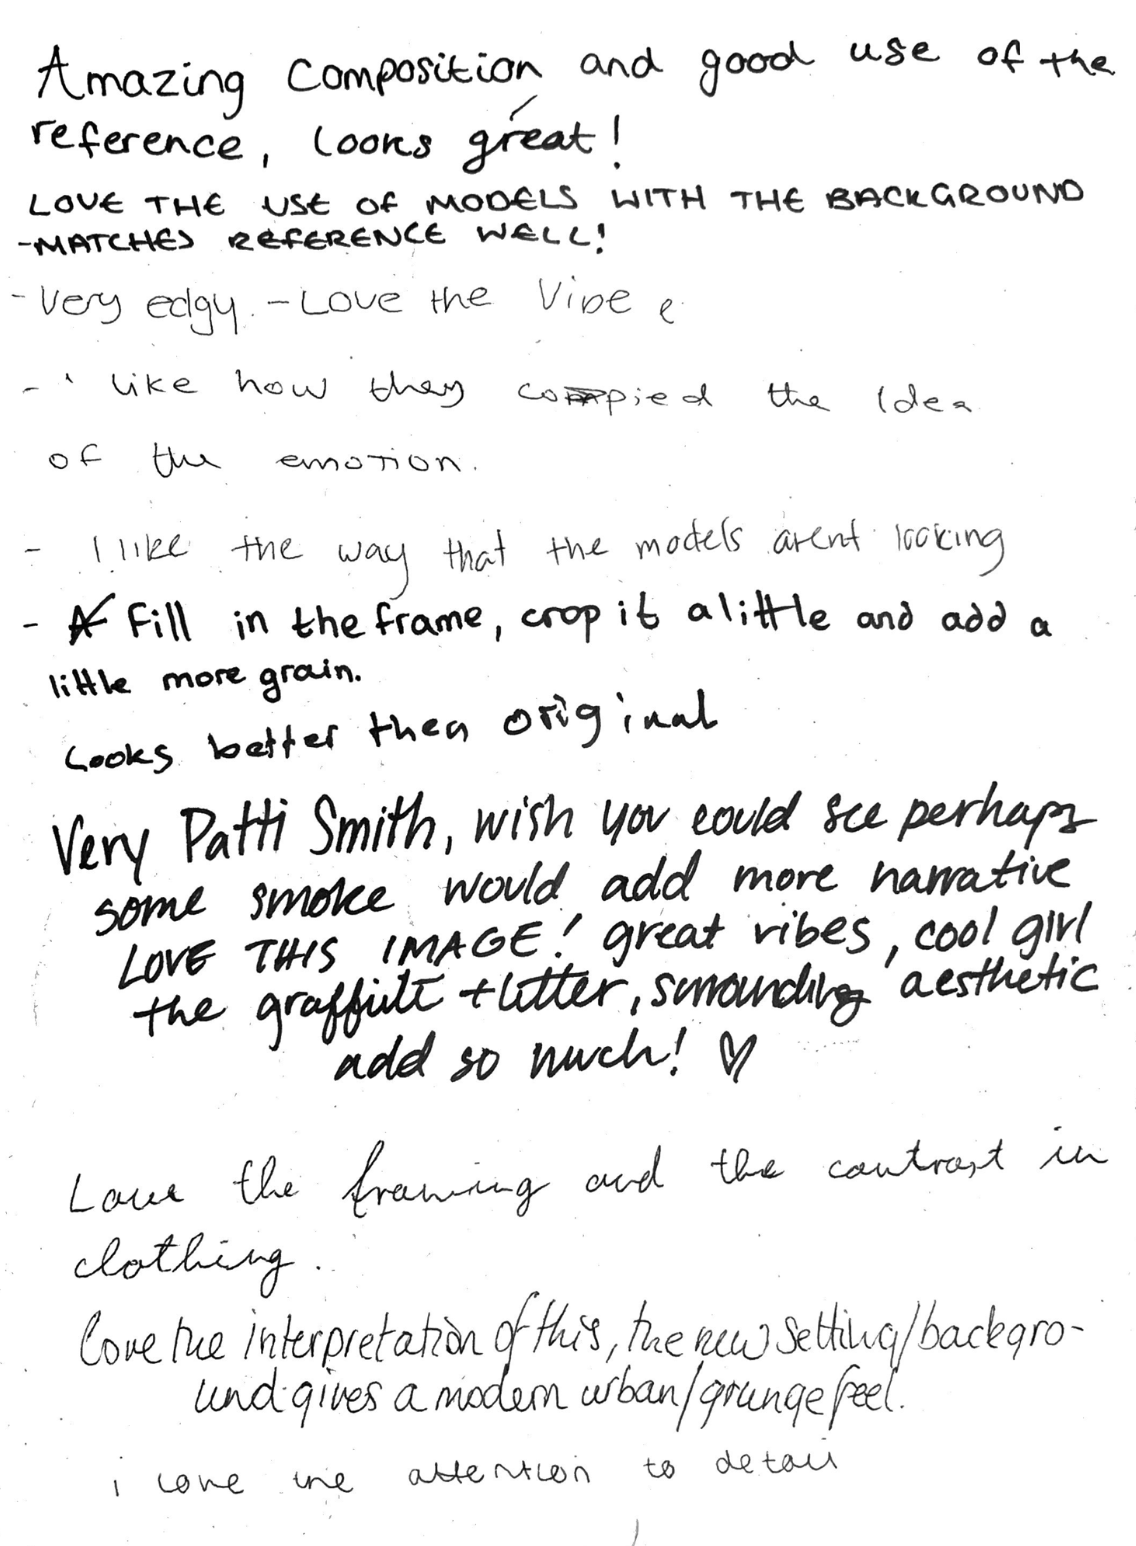 Amazing composition and good use of the
reference, looks great!
LOVE THE USE OF MODELS WITH THE BACKGROUND
-MATCHES REFERENCE WELL!
- Very edgy. - Love the Vibe e
- i like how they copied the Idea
of the emotion.
- I like the way that the models arent looking
- Fill in the frame, crop it a little and add a
little more grain.
Looks better then original
Very Patti Smith, wish you could see perhaps
some smoke would add more narrative
LOVE THIS IMAGE! great vibes, cool girl
the graffiti + litter, surrounding aesthetic
add so much! ♡
Love the framing and the contrast in
clothing.
Love the interpretation of this, the new setting/backgro-
und gives a modern urban/grunge feel.
i love the attention to detail